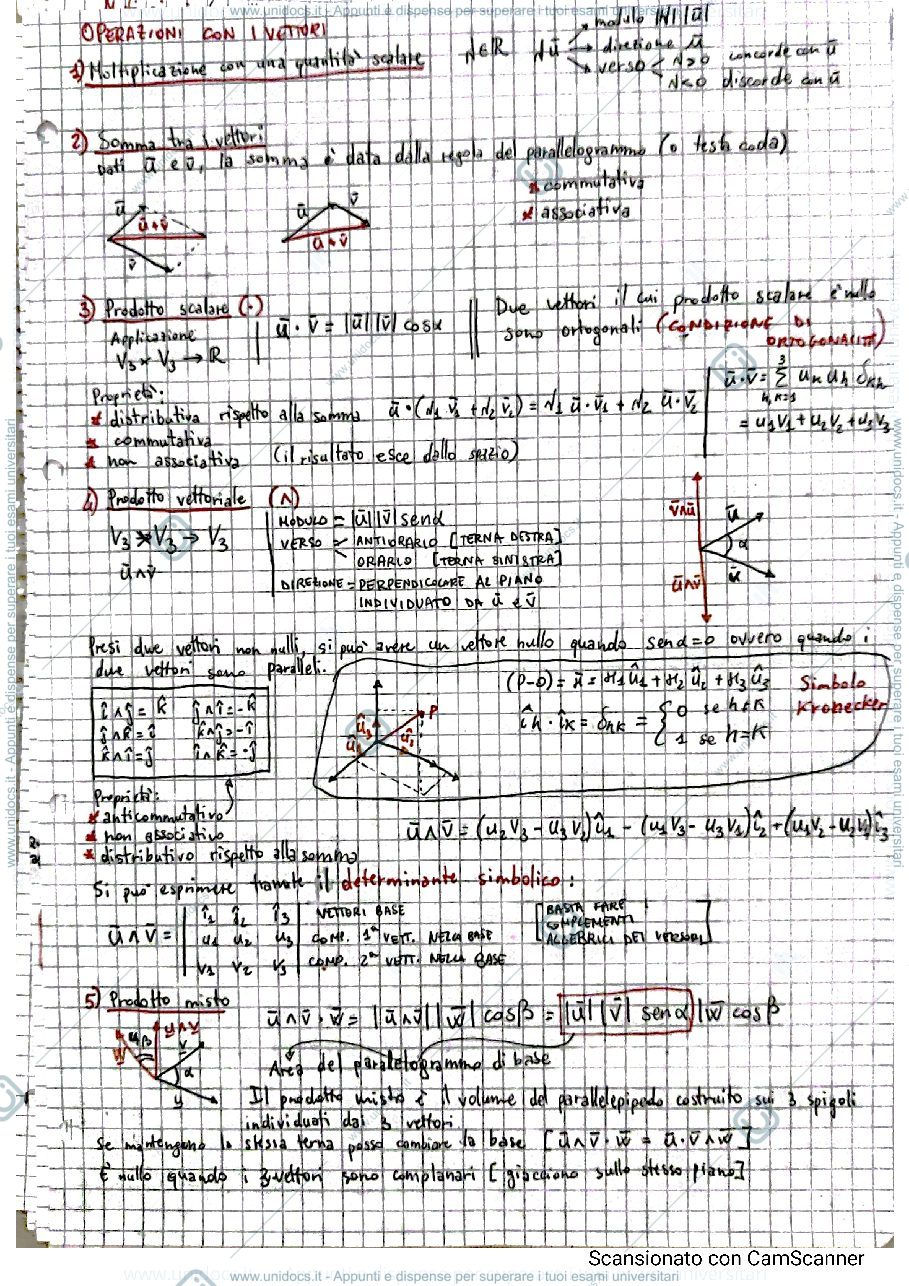 www.unidocs.it - Appunti e dispense per superare i tuoi esami universitari
OPERAZIONI CON I VETTORI
1) Moltiplicazione con una quantità scalare
λ∈ℝ λū
modulo |λ| |ū|
direzione ū
verso λ>0 concorde con ū
λ<0 discorde con ū
2) Somma tra i vettori
Dati ū e v̄, la somma è data dalla regola del parallelogrammo (o testa coda)
* commutativa
* associativa
ū ū+v̄ v̄
ū v̄ ū+v̄
3) Prodotto scalare (·)
Applicazione
V3 × V3 → ℝ
ū · v̄ = |ū||v̄| cosα
Due vettori il cui prodotto scalare è nullo
sono ortogonali (CONDIZIONE DI
ORTOGONALITÀ)
Proprietà:
* distributiva rispetto alla somma ū·(λ1 v̄1 + λ2 v̄2) = λ1 ū·v̄1 + λ2 ū·v̄2
* commutativa
* non associativa (il risultato esce dallo spazio)
ū·v̄ = Σ uk uh δkh
3
h,k=1
= u1v1 + u2v2 + u3v3
4) Prodotto vettoriale (∧)
V3 × V3 → V3
ū∧v̄
MODULO = |ū||v̄| senα
VERSO ANTIORARIO [TERNA DESTRA]
ORARIO [TERNA SINISTRA]
DIREZIONE = PERPENDICOLARE AL PIANO
INDIVIDUATO DA ū e v̄
v̄∧ū
ū
α
ū
ū∧v̄
Presi due vettori non nulli, si può avere un vettore nullo quando senα=0 ovvero quando i
due vettori sono paralleli.
î∧ĵ = k̂ ĵ∧î = -k̂
ĵ∧k̂ = î k̂∧ĵ = -î
k̂∧î = ĵ î∧k̂ = -ĵ
(P-O) = x̄ = x1û1 + x2û2 + x3û3
Simbolo
Kronecker
îh · îk = δhk = { 0 se h≠k
1 se h=k
P
Proprietà:
* anticommutativo
* non associativo
* distributivo rispetto alla somma
ū∧v̄ = (u2v3 - u3v2)î1 - (u1v3 - u3v1)î2 + (u1v2 - u2v1)î3
Si può esprimere tramite il determinante simbolico:
ū∧v̄ =
î1 î2 î3 VETTORI BASE
u1 u2 u3 COMP. 1° VETT. NELLA BASE
v1 v2 v3 COMP. 2° VETT. NELLA BASE
[BASTA FARE I
COMPLEMENTI
ALGEBRICI DEI VERSORI]
5) Prodotto misto
ū∧v̄ · w̄ = |ū∧v̄| |w̄| cosβ = |ū| |v̄| senα |w̄| cosβ
Area del parallelogrammo di base
Il prodotto misto è il volume del parallelepipedo costruito sui 3 spigoli
individuati dai 3 vettori
Se mantengono la stessa terna posso cambiare la base [ū∧v̄ · w̄ = ū · v̄∧w̄]
È nullo quando i 3 vettori sono complanari [giacciono sullo stesso piano]
Scansionato con CamScanner
www.unidocs.it - Appunti e dispense per superare i tuoi esami universitari